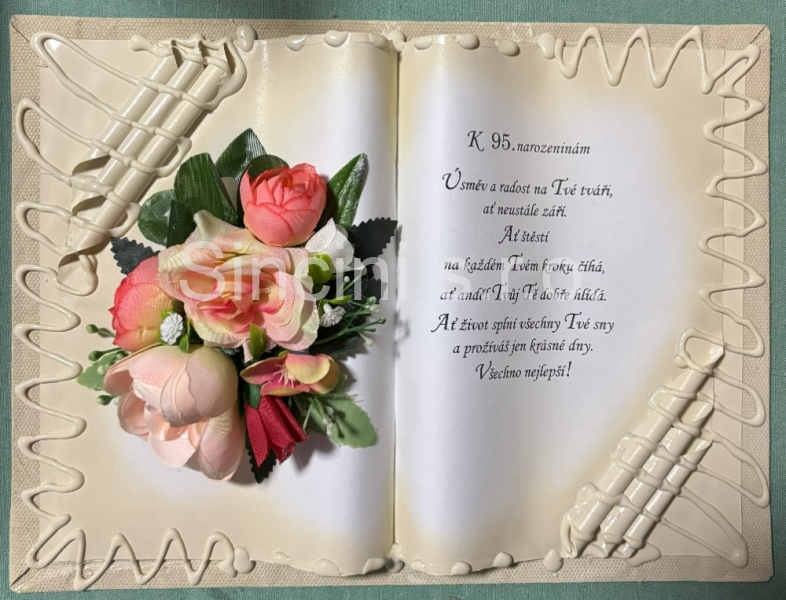 K 95. narozeninám
Úsměv a radost na Tvé tváři,
ať neustále září.
Ať štěstí
na každém Tvém kroku číhá,
ať anděl Tvůj Tě dobře hlídá.
Ať život splní všechny Tvé sny
a prožíváš jen krásné dny.
Všechno nejlepší!